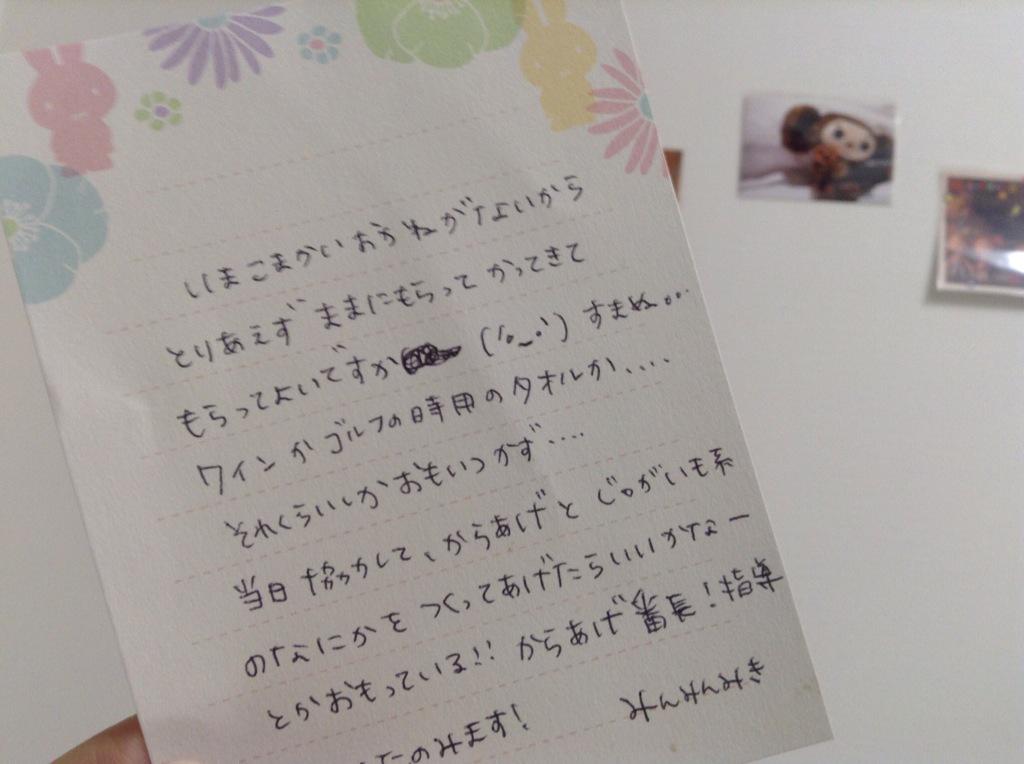 いまこまかいおかねがないから
とりあえずままにもらってかってきて
もらってよいですか ('o_o') すまぬ...
ワインかゴルフの時用のタオルか....
それくらいしかおもいつかず....
当日協力して、からあげとじゃがいも系
のなにかをつくってあげたらいいかなー
とかおもっている!! からあげ番長!指導
たのみます! みんみんみき